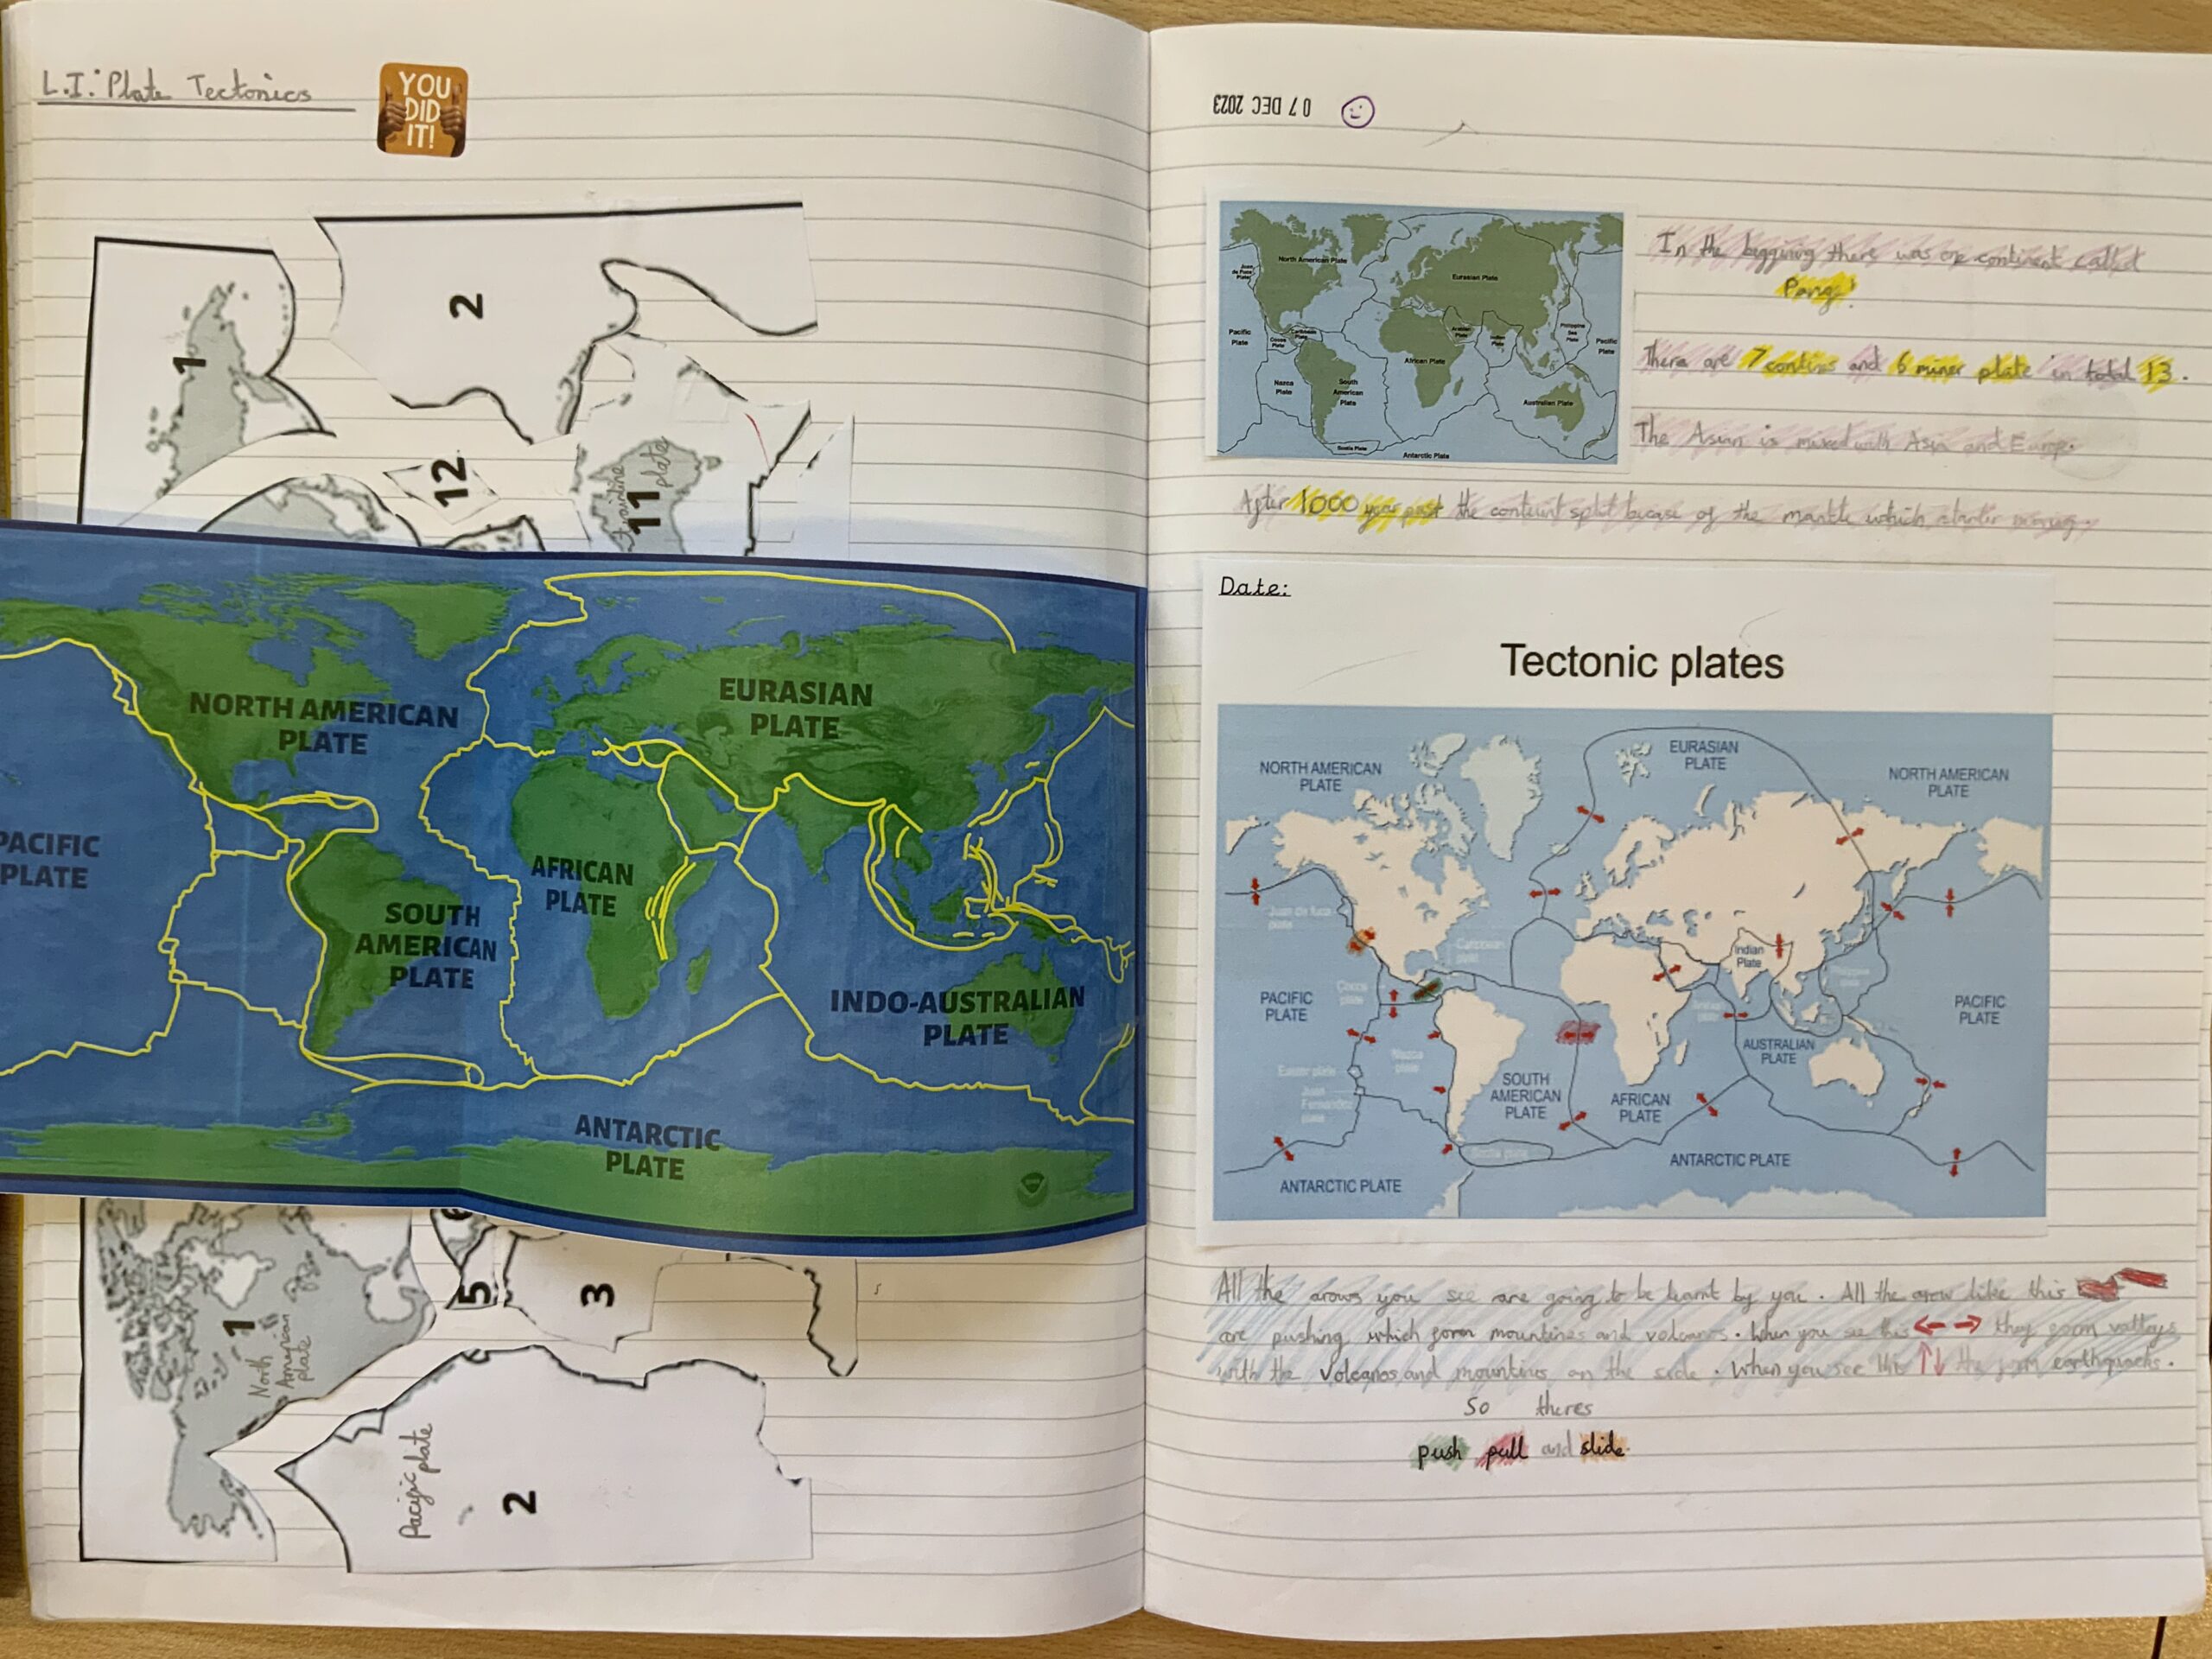 L.I: Plate Tectonics
YOU
DID
IT!
1
2
12
11
plate
NORTH AMERICAN
PLATE
EURASIAN
PLATE
PACIFIC
PLATE
AFRICAN
PLATE
SOUTH
AMERICAN
PLATE
INDO-AUSTRALIAN
PLATE
ANTARCTIC
PLATE
1
North
American
plate
5
3
Pacific plate
2
07 DEC 2023
North American Plate
Juan
de Fuca
Plate
Eurasian Plate
Pacific
Plate
Cocos
Plate
Caribbean
Plate
Arabian
Plate
Indian
Plate
Philippine
Sea
Plate
Pacific
Plate
African Plate
Nazca
Plate
South
American
Plate
Australian Plate
Scotia Plate
Antarctic Plate
In the beggining there was one continent called
Pang
There are 7 contins and 6 miner plate in total 13.
The Asian is mixed with Asia and Europ.
After 1000 year past the contient split becase of the mantle which
Date:
Tectonic plates
NORTH AMERICAN
PLATE
EURASIAN
PLATE
NORTH AMERICAN
PLATE
Juan de fuca
plate
Caribbean
plate
Indian
Plate
Cocos
plate
Philippine
plate
PACIFIC
PLATE
PACIFIC
PLATE
Nazca
plate
Easter plate
Juan
Fernandez
plate
SOUTH
AMERICAN
PLATE
AFRICAN
PLATE
AUSTRALIAN
PLATE
Scotia plate
ANTARCTIC PLATE
ANTARCTIC PLATE
All the arows you see are going to be learnt by you. All the arow like this
are pushing which form mountines and volcanos. When you see this ← → they form valleys
with the volcanos and mountins on the side. When you see this ↑↓ the form earthquacks.
So theres
push pull and slide.